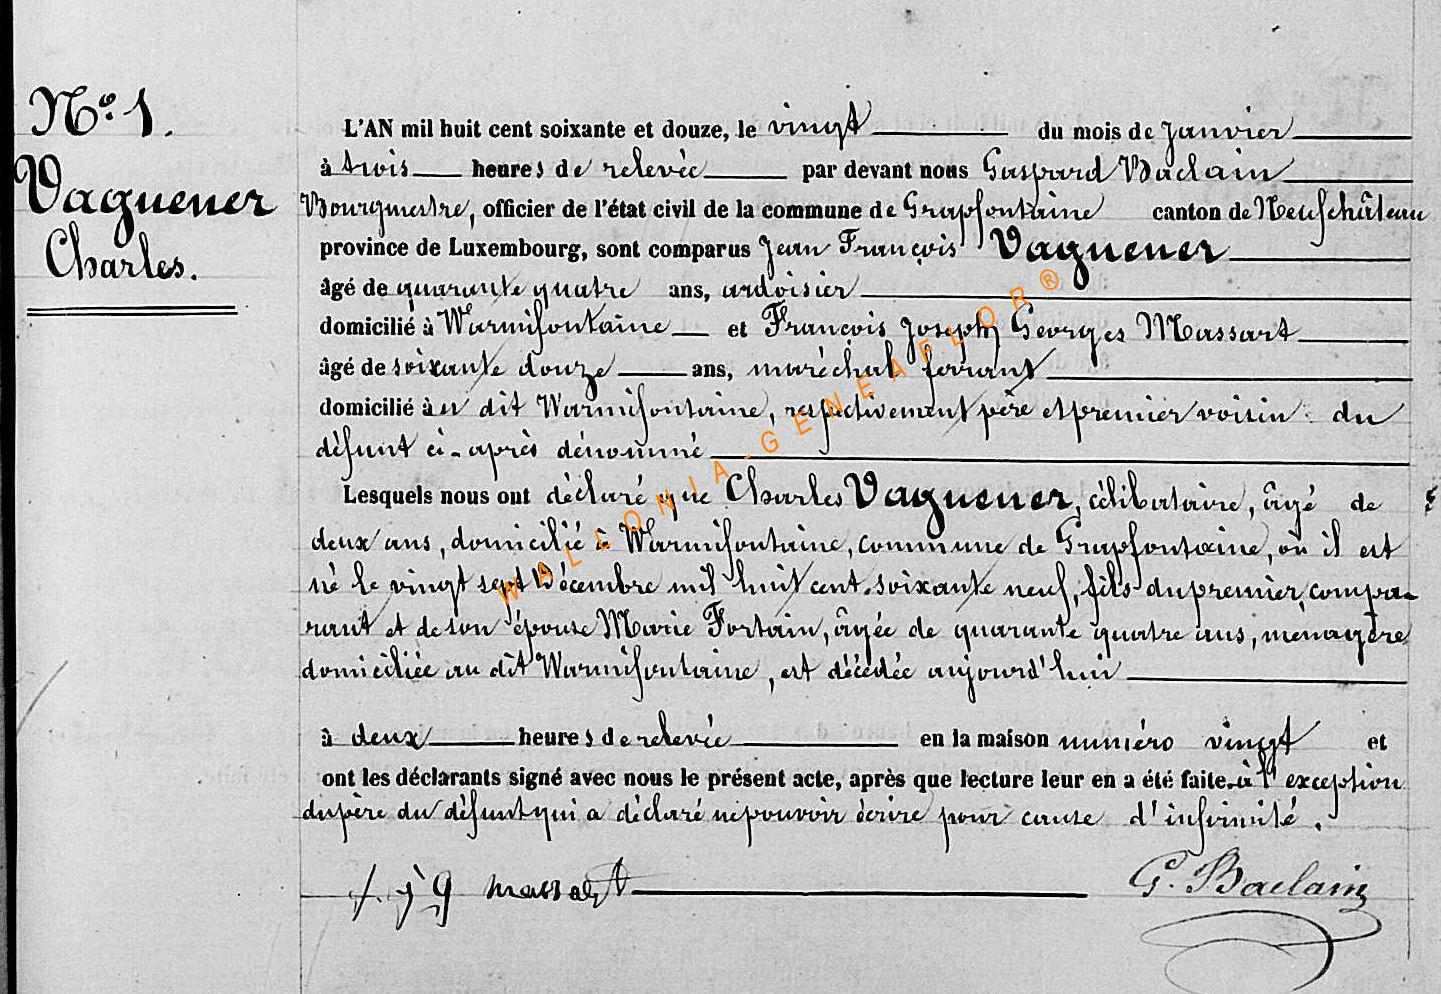 N.o 1.
Vaguener
Charles.
L'AN mil huit cent soixante et douze, le vingt du mois de Janvier
à trois heures de relevée par devant nous Gaspard Baclain
Bourgmestre, officier de l'état civil de la commune de Grapfontaine canton de Neufchâteau
province de Luxembourg, sont comparus Jean François Vaguener
âgé de quarante quatre ans, ardoisier
domicilié à Warmifontaine et François Joseph Georges Massart
âgé de soixante douze ans, maréchal ferrant
domicilié au dit Warmifontaine, respectivement père et premier voisin du
défunt ci-après dénommé
Lesquels nous ont déclaré que Charles Vaguener, célibataire, âgé de
deux ans, domicilié à Warmifontaine, commune de Grapfontaine, où il est
né le vingt sept Décembre mil huit cent soixante neuf, fils du premier, compa-
rant et de son épouse Marie Fortain, âgée de quarante quatre ans, ménagère
domiciliée au dit Warmifontaine, est décédée aujourd'hui
à deux heures de relevée en la maison numéro vingt et
ont les déclarants signé avec nous le présent acte, après que lecture leur en a été faite. à l'exception
du père du défunt qui a déclaré ne pouvoir écrire pour cause d'infirmité.
f. j g massart G. Baclain
WALLONIA-GENEAFLOR®